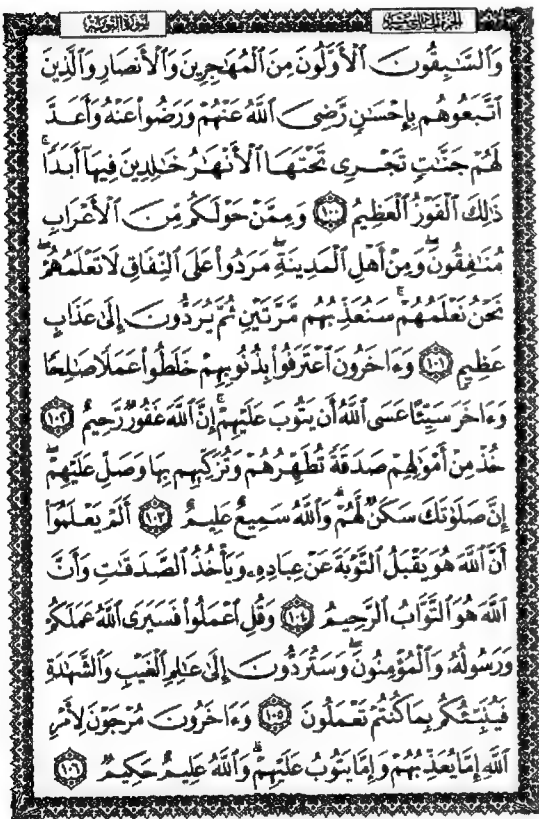 الجزء الحادي عشر
سورة التوبة
وَٱلسَّٰبِقُونَ ٱلْأَوَّلُونَ مِنَ ٱلْمُهَٰجِرِينَ وَٱلْأَنصَارِ وَٱلَّذِينَ
ٱتَّبَعُوهُم بِإِحْسَٰنٍ رَّضِىَ ٱللَّهُ عَنْهُمْ وَرَضُوا۟ عَنْهُ وَأَعَدَّ
لَهُمْ جَنَّٰتٍ تَجْرِى تَحْتَهَا ٱلْأَنْهَٰرُ خَٰلِدِينَ فِيهَآ أَبَدًا ۚ
ذَٰلِكَ ٱلْفَوْزُ ٱلْعَظِيمُ ١٠٠ وَمِمَّنْ حَوْلَكُم مِّنَ ٱلْأَعْرَابِ
مُنَٰفِقُونَ ۖ وَمِنْ أَهْلِ ٱلْمَدِينَةِ ۖ مَرَدُوا۟ عَلَى ٱلنِّفَاقِ لَا تَعْلَمُهُمْ ۖ
نَحْنُ نَعْلَمُهُمْ ۚ سَنُعَذِّبُهُم مَّرَّتَيْنِ ثُمَّ يُرَدُّونَ إِلَىٰ عَذَابٍ
عَظِيمٍ ١٠١ وَءَاخَرُونَ ٱعْتَرَفُوا۟ بِذُنُوبِهِمْ خَلَطُوا۟ عَمَلًا صَٰلِحًا
وَءَاخَرَ سَيِّئًا عَسَى ٱللَّهُ أَن يَتُوبَ عَلَيْهِمْ ۚ إِنَّ ٱللَّهَ غَفُورٌ رَّحِيمٌ ١٠٢
خُذْ مِنْ أَمْوَٰلِهِمْ صَدَقَةً تُطَهِّرُهُمْ وَتُزَكِّيهِم بِهَا وَصَلِّ عَلَيْهِمْ ۖ
إِنَّ صَلَوٰتَكَ سَكَنٌ لَّهُمْ ۗ وَٱللَّهُ سَمِيعٌ عَلِيمٌ ١٠٣ أَلَمْ يَعْلَمُوٓا۟
أَنَّ ٱللَّهَ هُوَ يَقْبَلُ ٱلتَّوْبَةَ عَنْ عِبَادِهِۦ وَيَأْخُذُ ٱلصَّدَقَٰتِ وَأَنَّ
ٱللَّهَ هُوَ ٱلتَّوَّابُ ٱلرَّحِيمُ ١٠٤ وَقُلِ ٱعْمَلُوا۟ فَسَيَرَى ٱللَّهُ عَمَلَكُمْ
وَرَسُولُهُۥ وَٱلْمُؤْمِنُونَ ۖ وَسَتُرَدُّونَ إِلَىٰ عَٰلِمِ ٱلْغَيْبِ وَٱلشَّهَٰدَةِ
فَيُنَبِّئُكُم بِمَا كُنتُمْ تَعْمَلُونَ ١٠٥ وَءَاخَرُونَ مُرْجَوْنَ لِأَمْرِ
ٱللَّهِ إِمَّا يُعَذِّبُهُمْ وَإِمَّا يَتُوبُ عَلَيْهِمْ ۗ وَٱللَّهُ عَلِيمٌ حَكِيمٌ ١٠٦